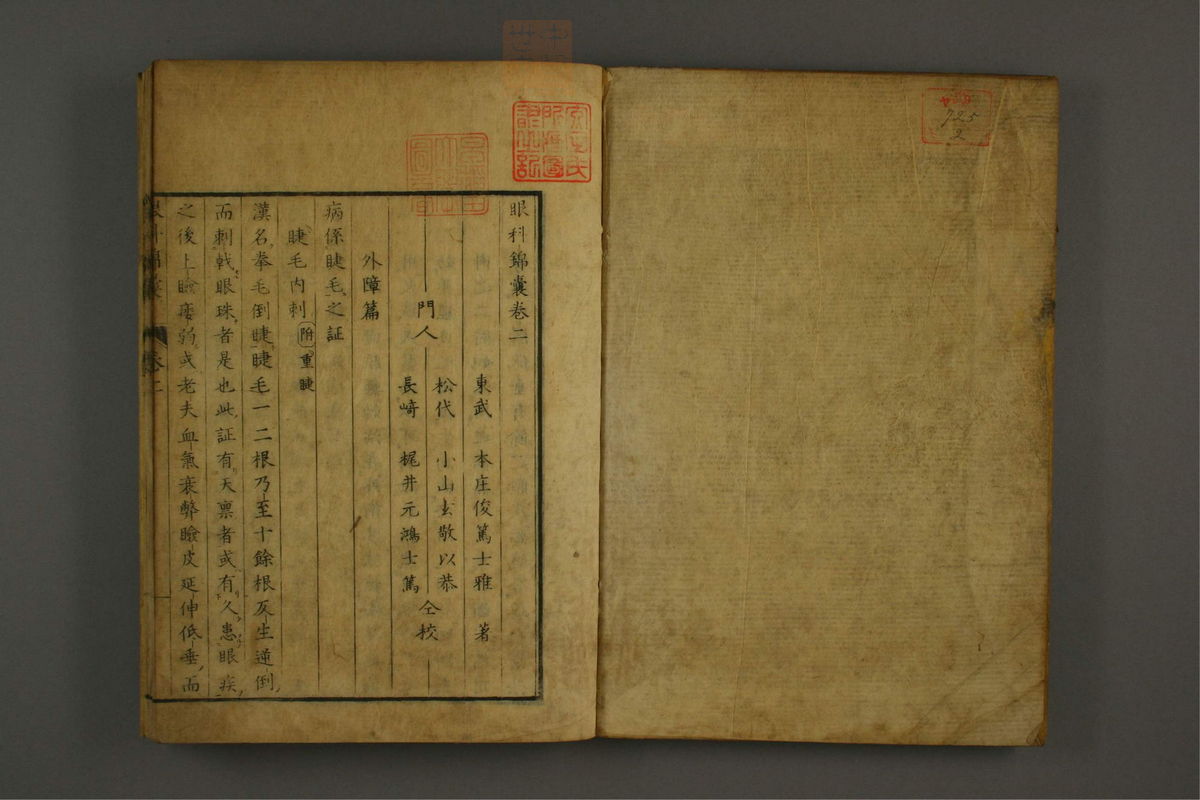 眼科錦囊卷二
東武 本庄俊篤士雅 著
門人
松代 小山玄敬以恭
長崎 梶井元鴻士篤
仝校
外障篇
病係睫毛之証
睫毛内刺 附重睫
漢名拳毛倒睫睫毛一二根乃至十餘根反生逆倒
而刺戟眼珠者是也此証有天禀者或有久患眼疾
之後上瞼痿弱或老夫血氣衰弊瞼皮延伸低垂而
卷二
725
2